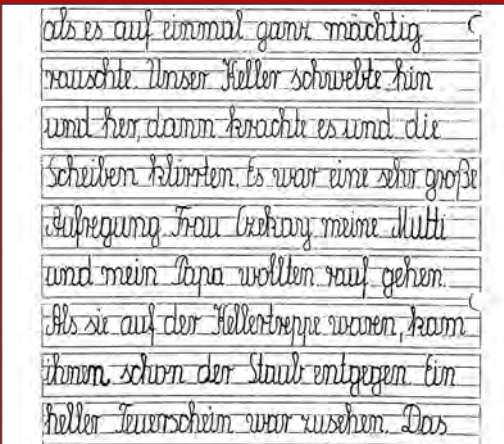 als es auf einmal ganz mächtig
rauschte. Unser Keller schwebte hin
und her, dann krachte es und die
Scheiben klirrten. Es war eine sehr große
Aufregung. Frau meine Mutti
und mein Papa wollten rauf gehen.
Als sie auf der Kellertreppe waren, kam
ihnen schon der Staub entgegen Ein
heller Feuerschein war zusehen. Das